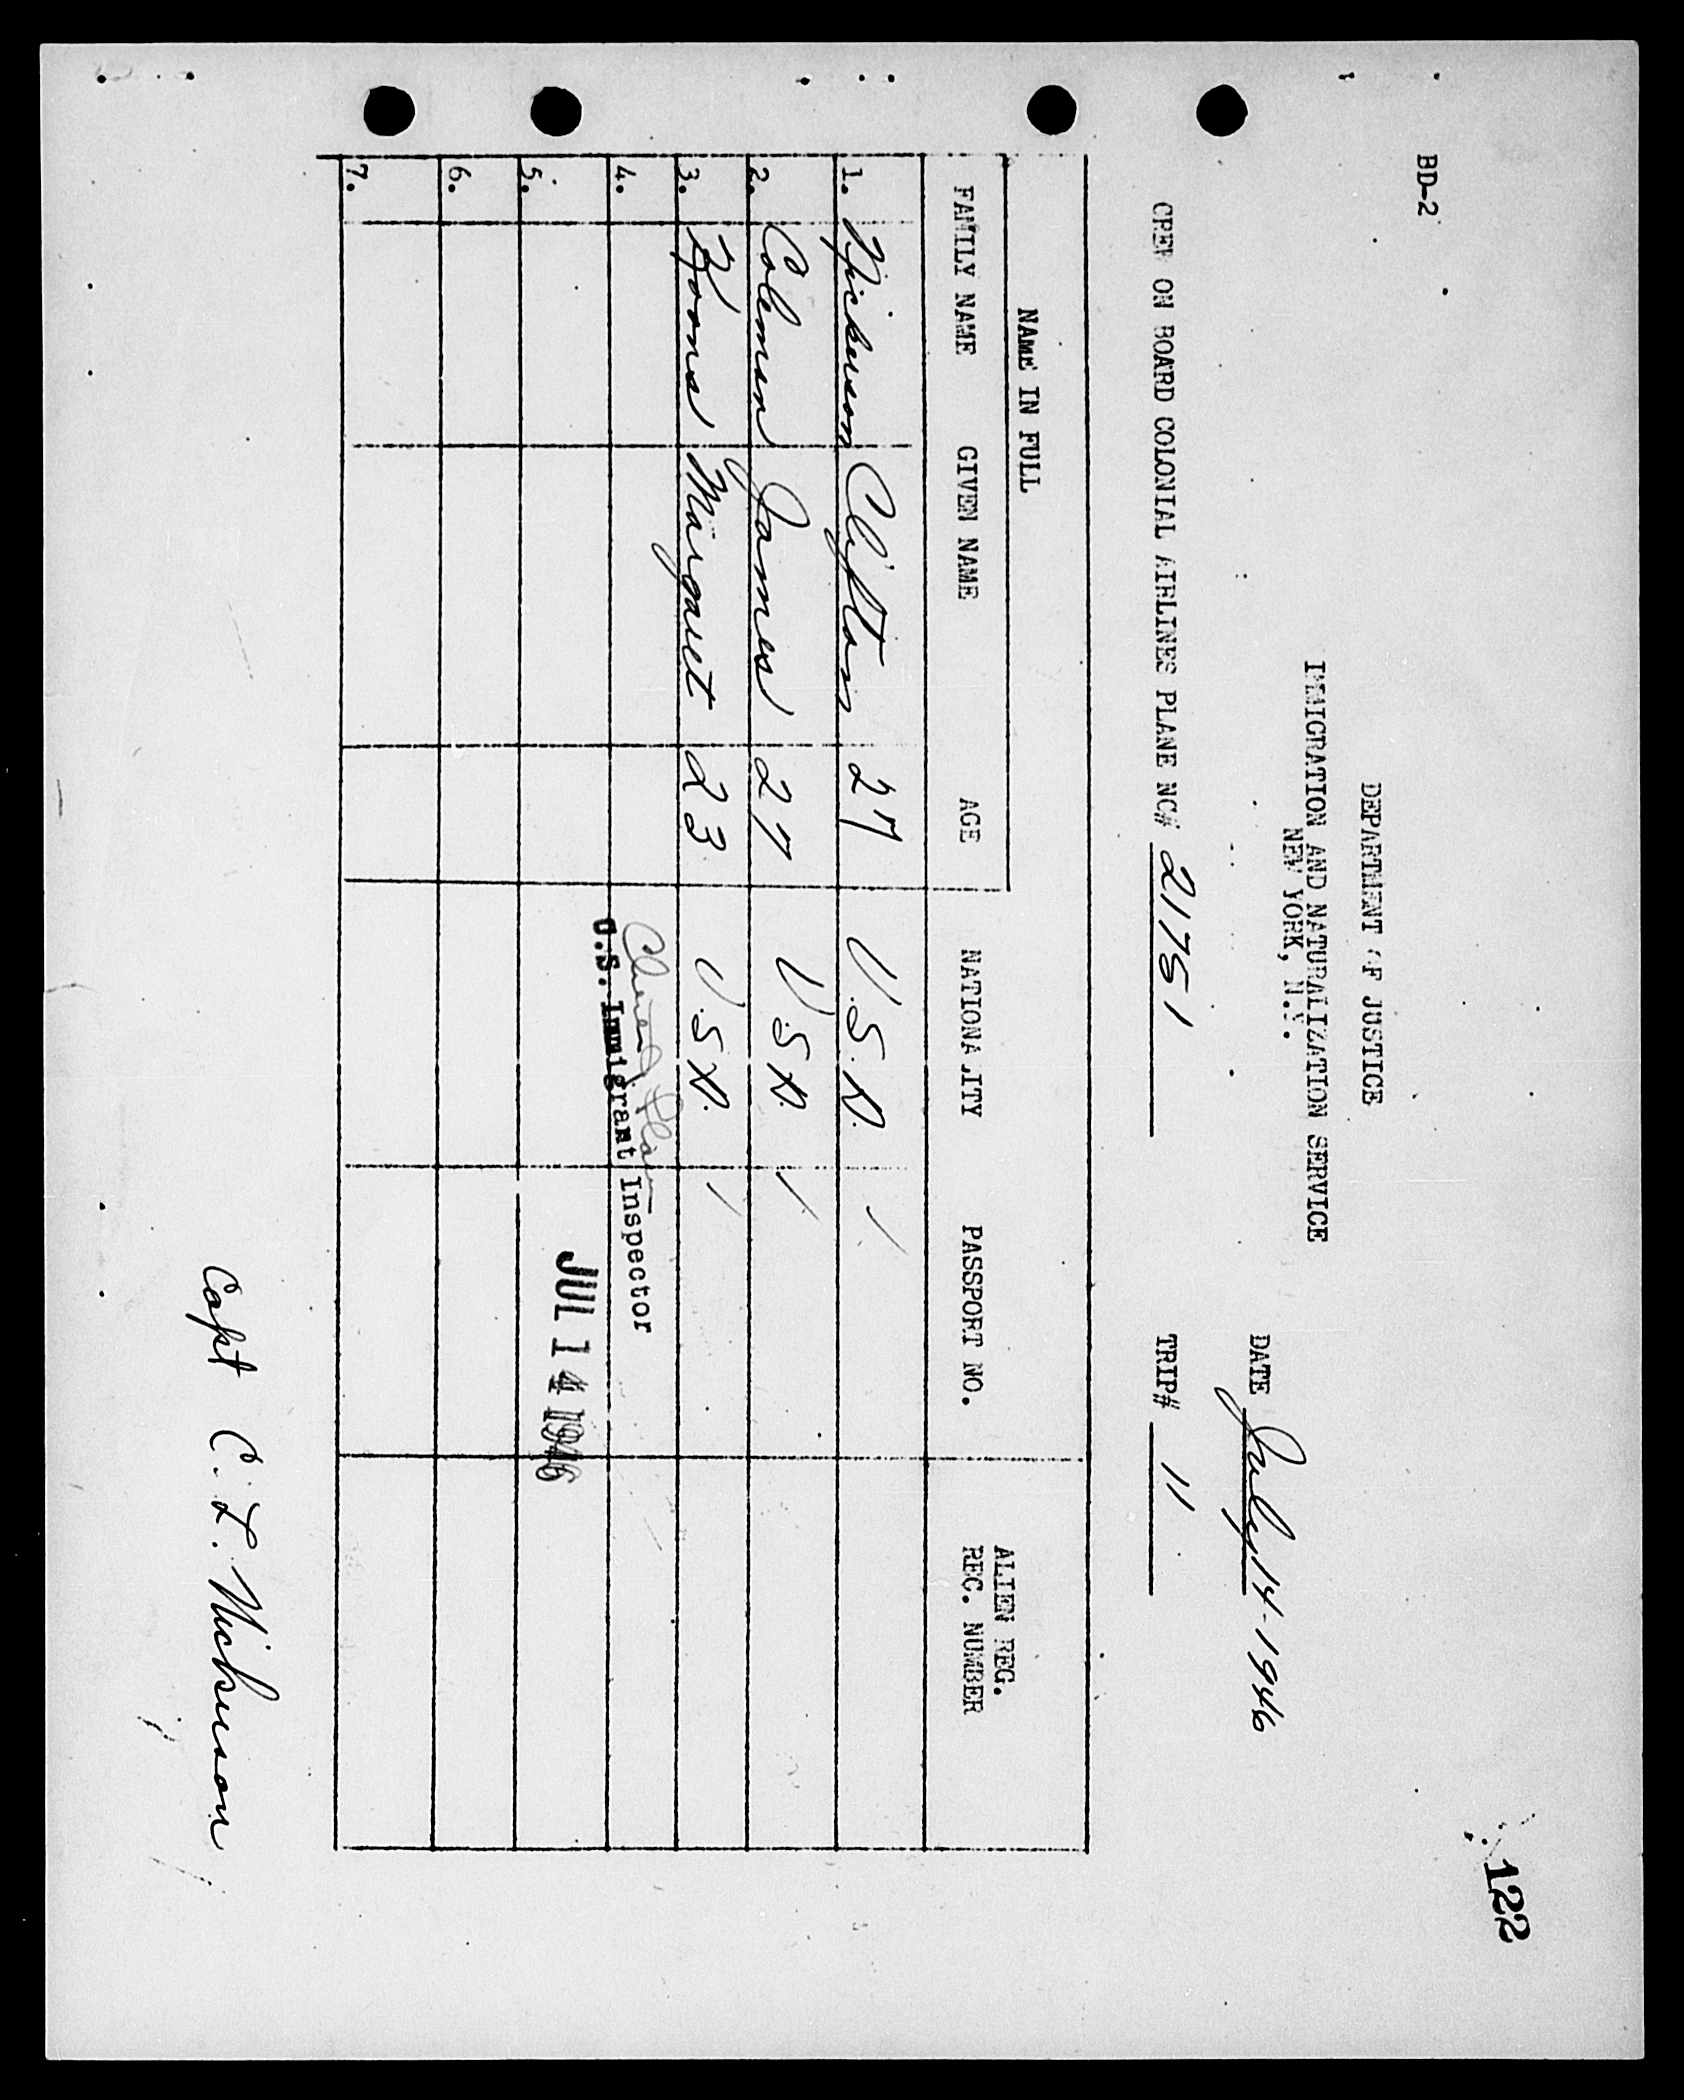 122
BD-2
DEPARTMENT OF JUSTICE
IMMIGRATION AND NATURALIZATION SERVICE
NEW YORK, N.Y.
DATE July 14-1946
CREW ON BOARD COLONIAL AIRLINES PLANE NC# 21751 TRIP# 11
NAME IN FULL
FAMILY NAME GIVEN NAME AGE NATIONALITY PASSPORT NO. ALIEN REG. REC. NUMBER
1. Nickerson Clifton 27 U.S.A. /
2. Coleman James 27 U.S.A. /
3. Koons Margaret 23 U.S.A. /
4.
U.S. Immigrant Inspector
5. JUL 14 1946
6.
7.
Capt C. L. Nickerson